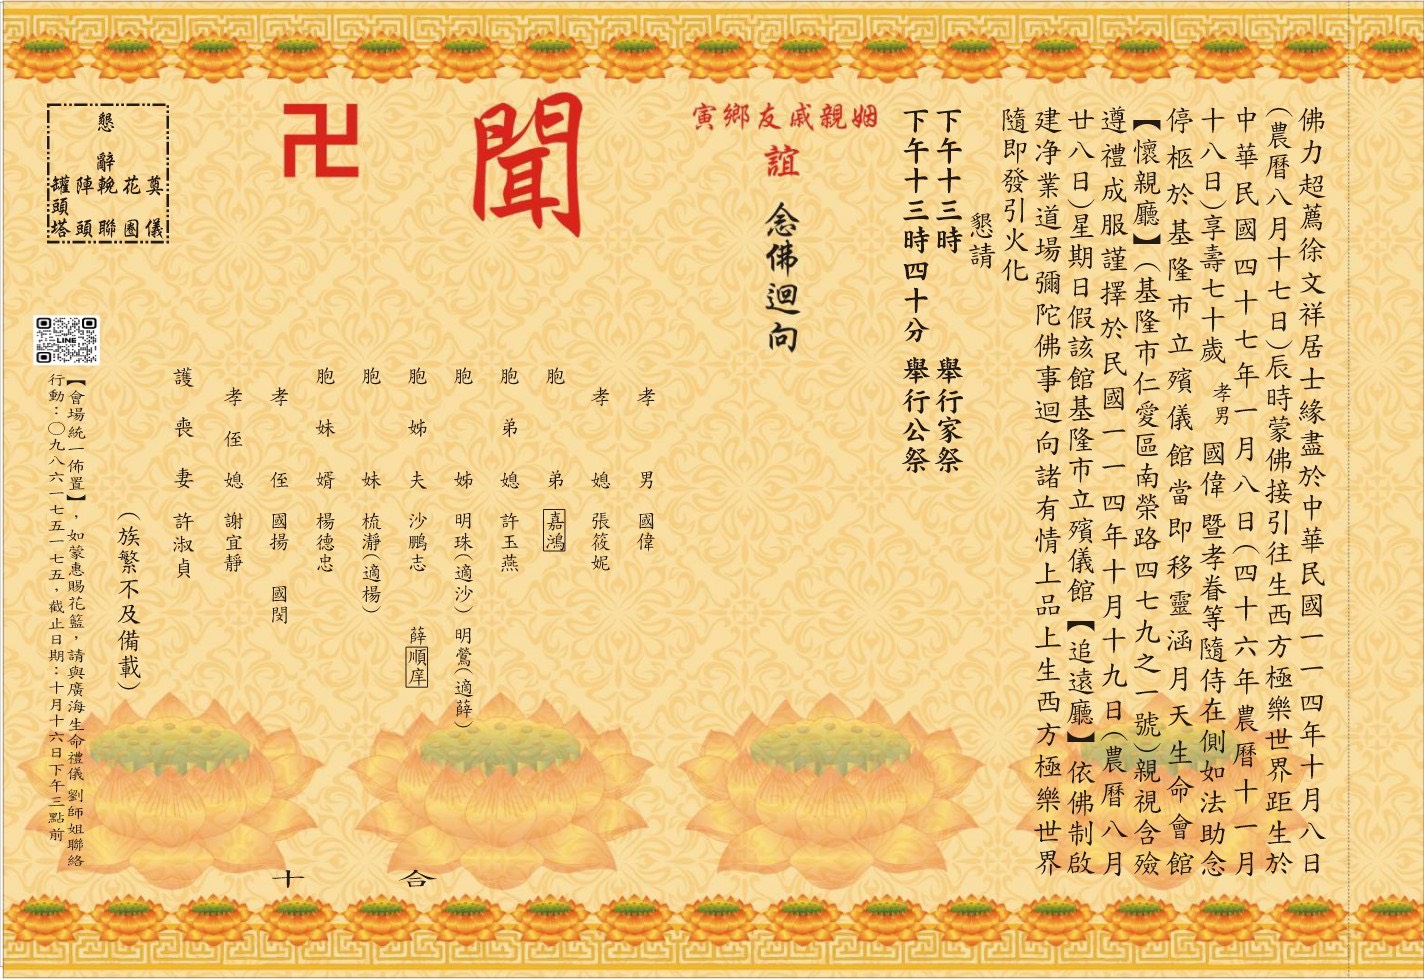 佛力超薦徐文祥居士緣盡於中華民國一一四年十月八日
(農曆八月十七日)辰時蒙佛接引往生西方極樂世界距生於
中華民國四十七年一月八日(四十六年農曆十一月
十八日)享壽七十歲 孝男 國偉暨孝眷等隨侍在側如法助念
停柩於基隆市立殯儀館當即移靈涵月天生命會館
【懷親廳】(基隆市仁愛區南榮路四七九之一號)親視含殮
遵禮成服謹擇於民國一一四年十月十九日(農曆八月
廿八日)星期日假該館基隆市立殯儀館【追遠廳】依佛制啟
建净業道場彌陀佛事迴向諸有情上品上生西方極樂世界
隨即發引火化
懇請
下午十三時 舉行家祭
下午十三時四十分 舉行公祭
姻親戚友鄉寅
誼
念佛迴向
聞
卍
孝男 國偉
孝媳 張筱妮
胞弟 嘉鴻
胞弟媳 許玉燕
胞姊 明珠(適沙) 明鶯(適薛)
胞姊夫 沙鵬志 薛順庠
胞妹 梳瀞(適楊)
胞妹婿 楊德忠
孝侄 國揚 國閔
孝侄媳 謝宜靜
護喪妻 許淑貞
(族繁不及備載)
合十
懇辭
奠儀
花圈
輓聯
陣頭
罐頭塔
LINE
【會場統一佈置】,如蒙惠賜花籃,請與廣海生命禮儀 劉師姐聯絡
行動:〇九八六一七五一七五,截止日期:十月十六日下午三點前